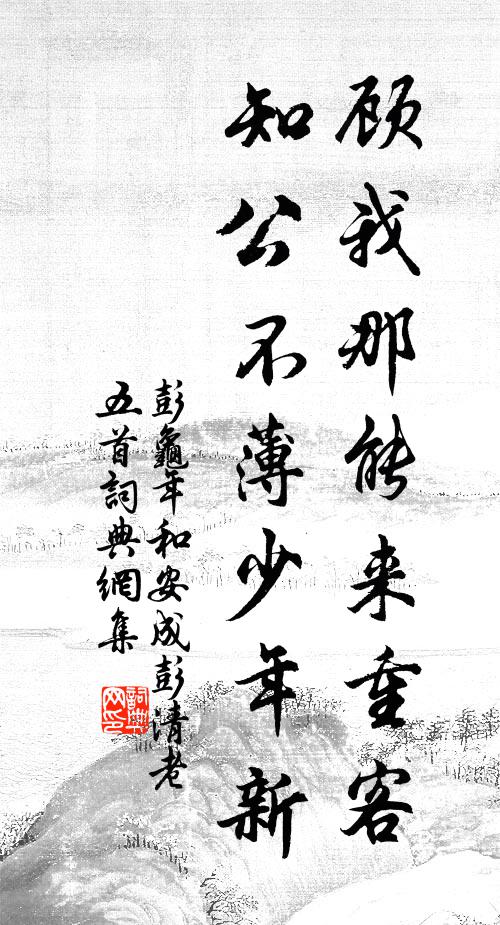 顾我那能来重客
知公不薄少年新
彭龜年和安成彭清老
五首詞典網集
詞典网印